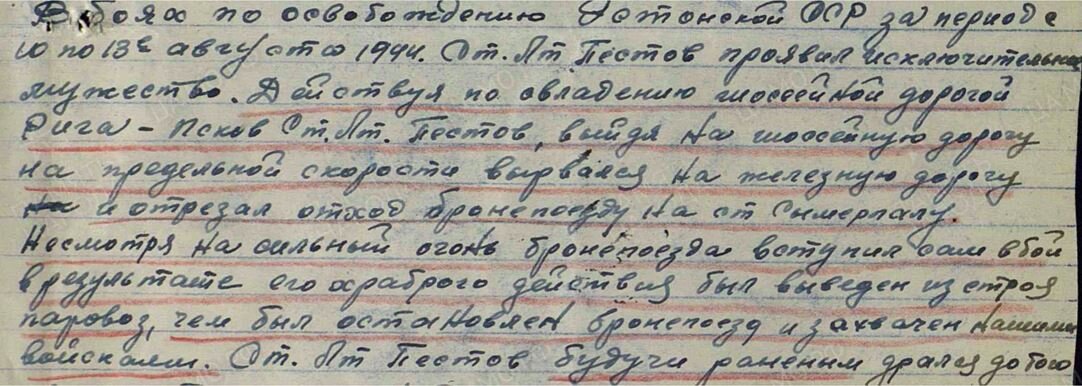 В боях по освобождению Эстонской ССР за период с
10 по 13е августа 1944. Ст. Лт Пестов проявил исключительное
мужество. Действуя по овладению шоссейной дорогой
Рига - Псков Ст. Лт. Пестов, выйдя на шоссейную дорогу
на предельной скорости вырвался на железную дорогу
на и отрезал отход бронепоезду на ст Сымерпалу.
Несмотря на сильный огонь бронепоезда вступил сам в бой
в результате его храброго действия был выведен из строя
паровоз, чем был остановлен бронепоезд и захвачен нашими
войсками. Ст. Лт Пестов будучи раненым дрался до того